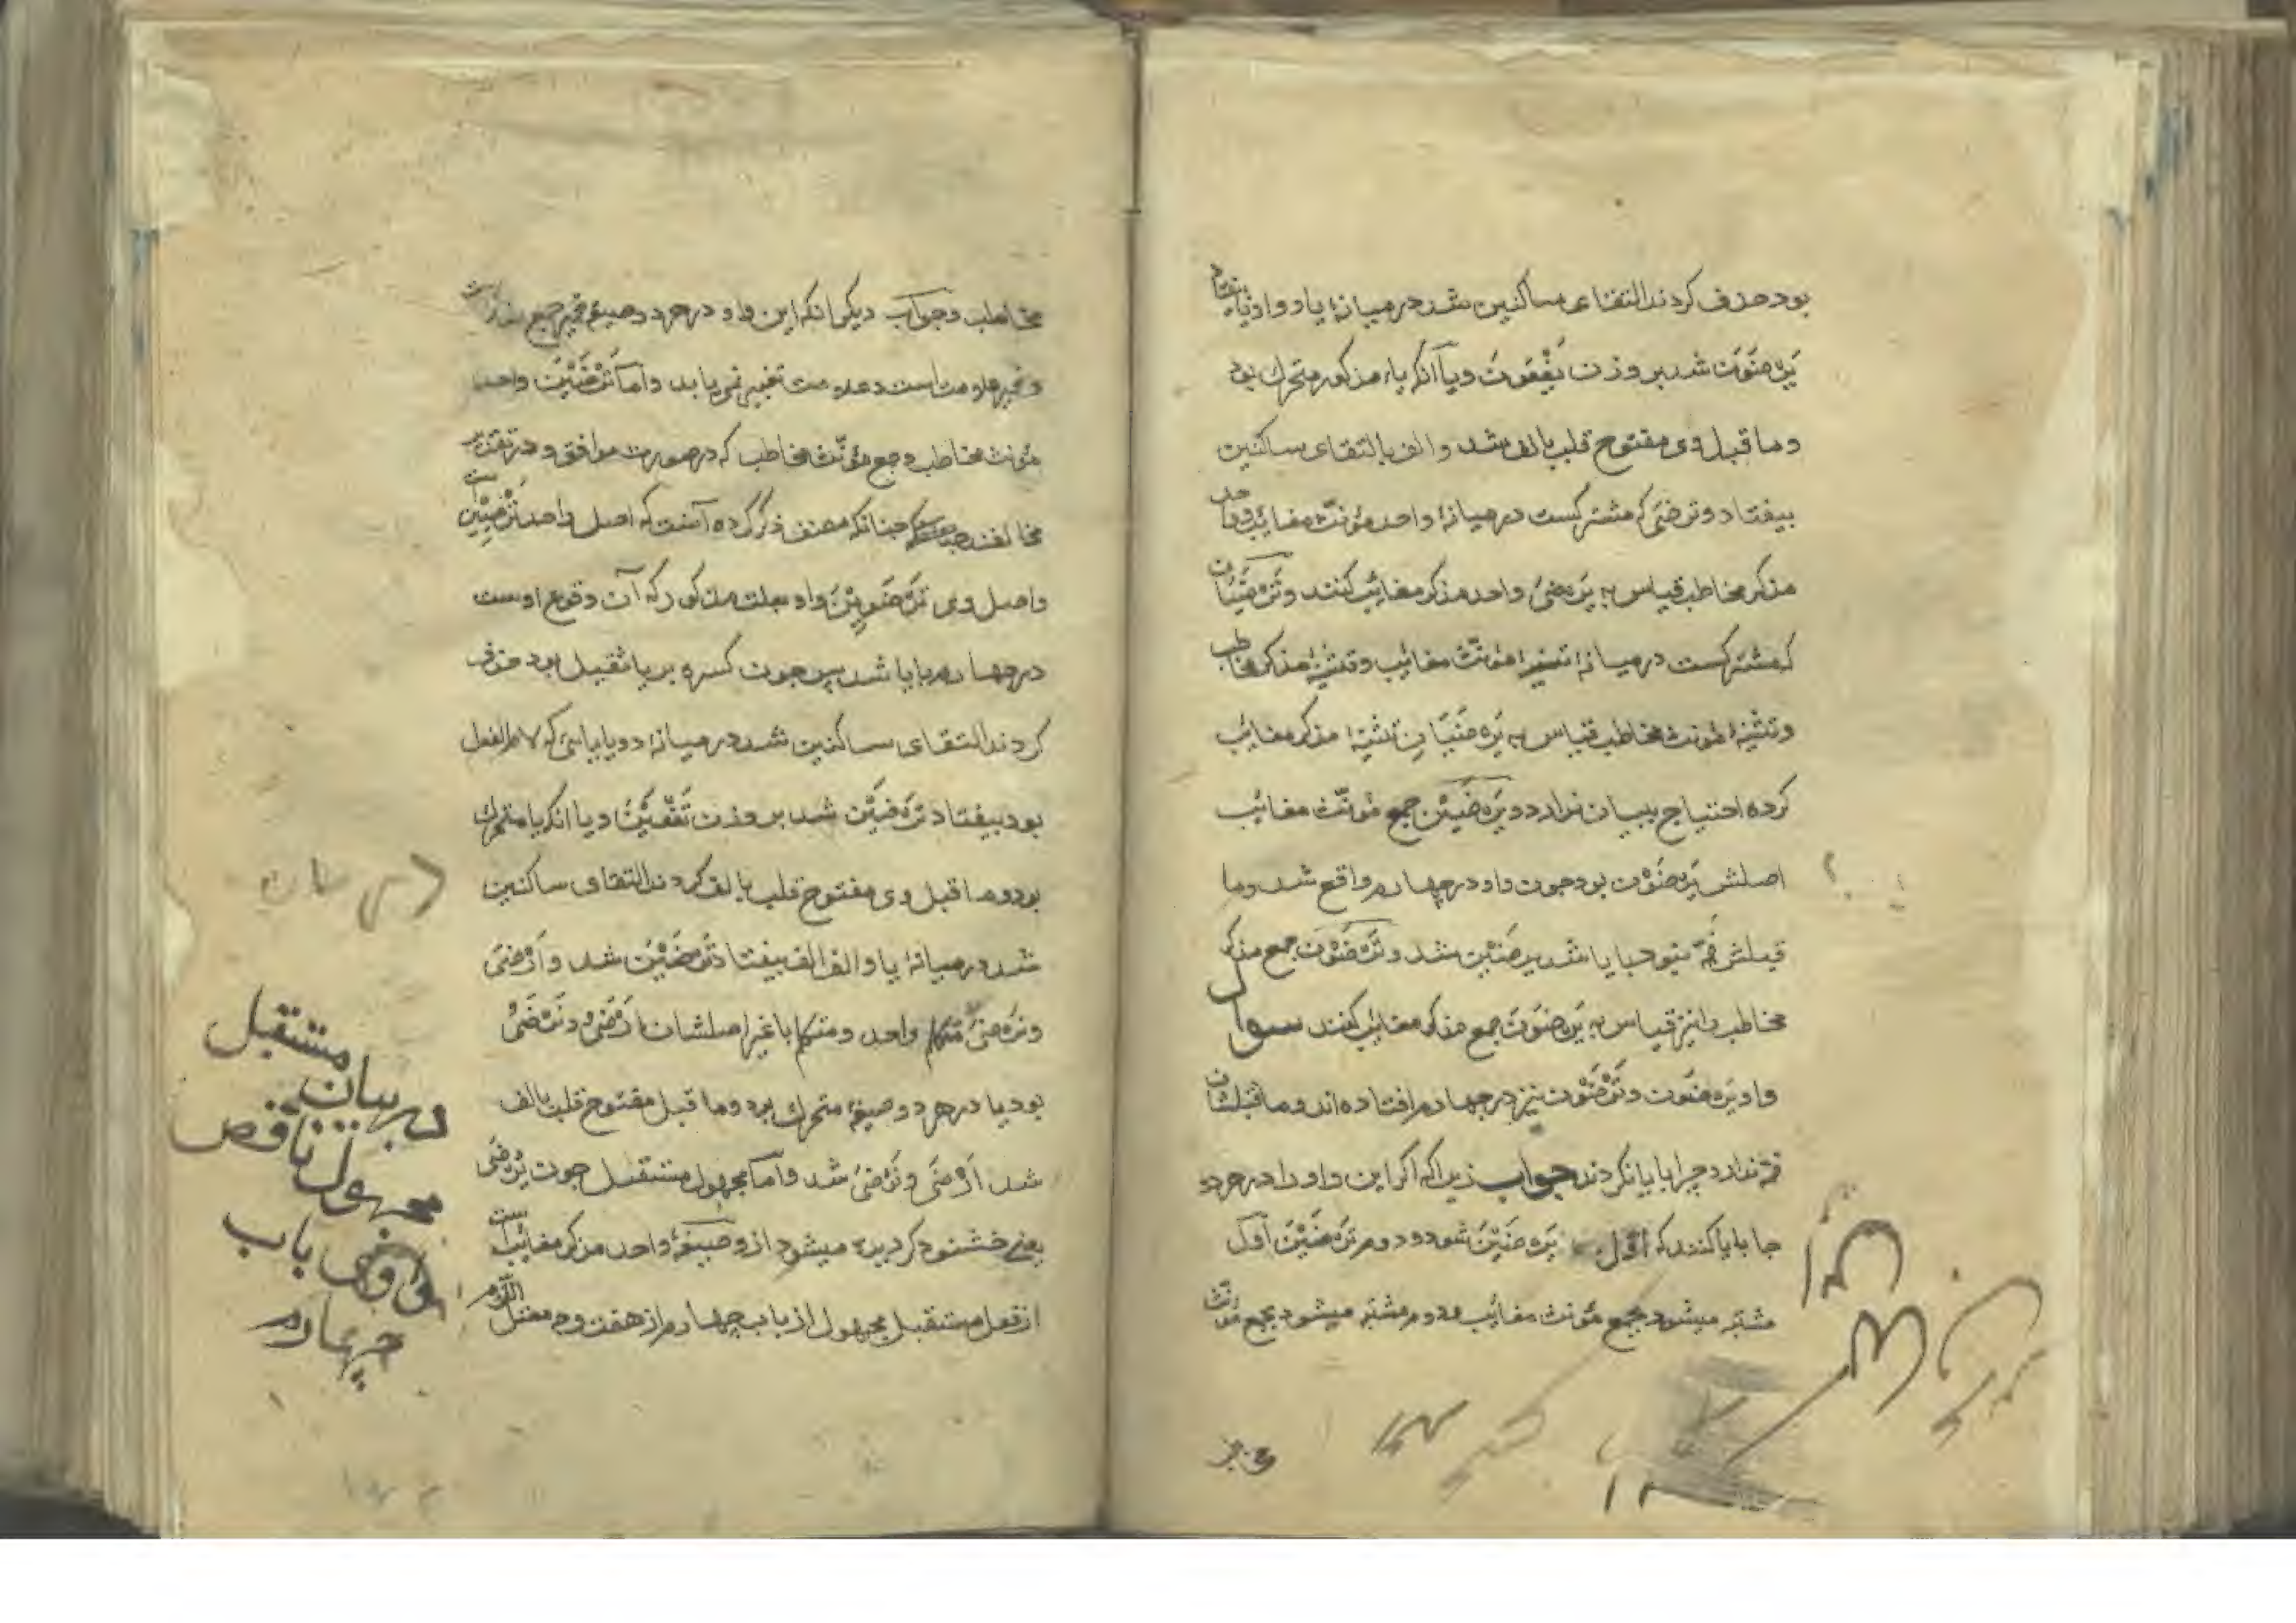 بود حذف کردند التقای ساکنین شد در میانهٔ یا و واو یا بیفتاد
یَرْضَوْنَ شد بر وزن یَفْعَوْنَ و یا آنکه یاء مذکور متحرک بود
و ما قبل وی مفتوح قلب بالف شد و الف بالتقای ساکنین
بیفتاد و ترضی که مشترکست در میانهٔ واحد مؤنث مغائب و واحد
مذکر مخاطب قیاس به یَرْضیٰ واحد مذکر مغائب کنند و تَرْضَیَانِ
که مشترکست در میانهٔ تثنیهٔ مؤنث مغائب و تثنیهٔ مذکر مخاطب
و تثنیهٔ مؤنث مخاطب قیاس به یَرْضَیَانِ تثنیهٔ مذکر مغائب
کرده احتیاج ببیان ندارد و یَرْضَیْنَ جمع مؤنّث مغائب
اصلش یَرْضَوْنَ بود جون واو در چهارم واقع شد و ما
قبلش ضمّه نبود بیا شد یرضَیْنَ شد و تَرْضَوْنَ جمع مذکر
مخاطب را نیز قیاس به یَرْضَوْنَ جمع مذکر مغائب کنند سوال
واو یَرْضَوْنَ و تَرْضَوْنَ نیز در چهارم افتاده اند و ما قبلشان
ضمّه ندارد چرا بایا نکردند جواب زیرا که اکر این واو را در هر دو
جا بایا کنند که اوّل یَرْضَیْنَ شود و دوم تَرْضَیْنَ اوّل
مشتبه میشود بجمع مؤنث مغائب و دوم مشتبه میشود بجمع مؤنث
مخاطب و جواب دیگر آنکه این واو در هر دو صیغه ضمیر جمع مذکر است
و ضمیر علامت است و علامت تغییر نمی یابد و اما تَرْضَیْنَ واحد
مؤنث مخاطب و جمع مؤنّث مخاطب که در صورت موافق و در تقدیر
مخالفند چنانکه مصنف ذکر کرده آنست که اصل واحد تَرْضَیِیْنَ است
و اصل وی تَرْضَوِیْنَ واو بعلت مذکور که آن وقوع اوست
در چهارم بایا شد پس جون کسره بر یا ثقیل بود حذف
کردند التقای ساکنین شد در میانهٔ دو یا یائی که لام الفعل
بود بیفتاد تَرْضَیْنَ شد بر وزن تَفْعَیْنَ و یا آنکه یا متحرک
بود و ما قبل وی مفتوح قلب بالف کردند التقای ساکنین
شد در میانهٔ یا و الف الف بیفتاد تَرْضَیْنَ شد و اَرْضیٰ
و نَرْضیٰ متکلم واحد و متکلم با غیر اصلشان اَرْضَیُ و نَرْضَیُ
بود یا در هر دو صیغه متحرک بود و ما قبل مفتوح قلب بالف
شد اَرْضیٰ و نَرْضیٰ شد و اما مجهول مستقبل جون یُرْضیٰ
یعنی خشنود کردیده میشود از و صیغهٔ واحد مذکر مغائب است
از فعل مستقبل مجهول از باب چهارم از هفت وجه معتل اللام
در بیان مستقبل
مجهول ناقص
واوی باب
چهارم